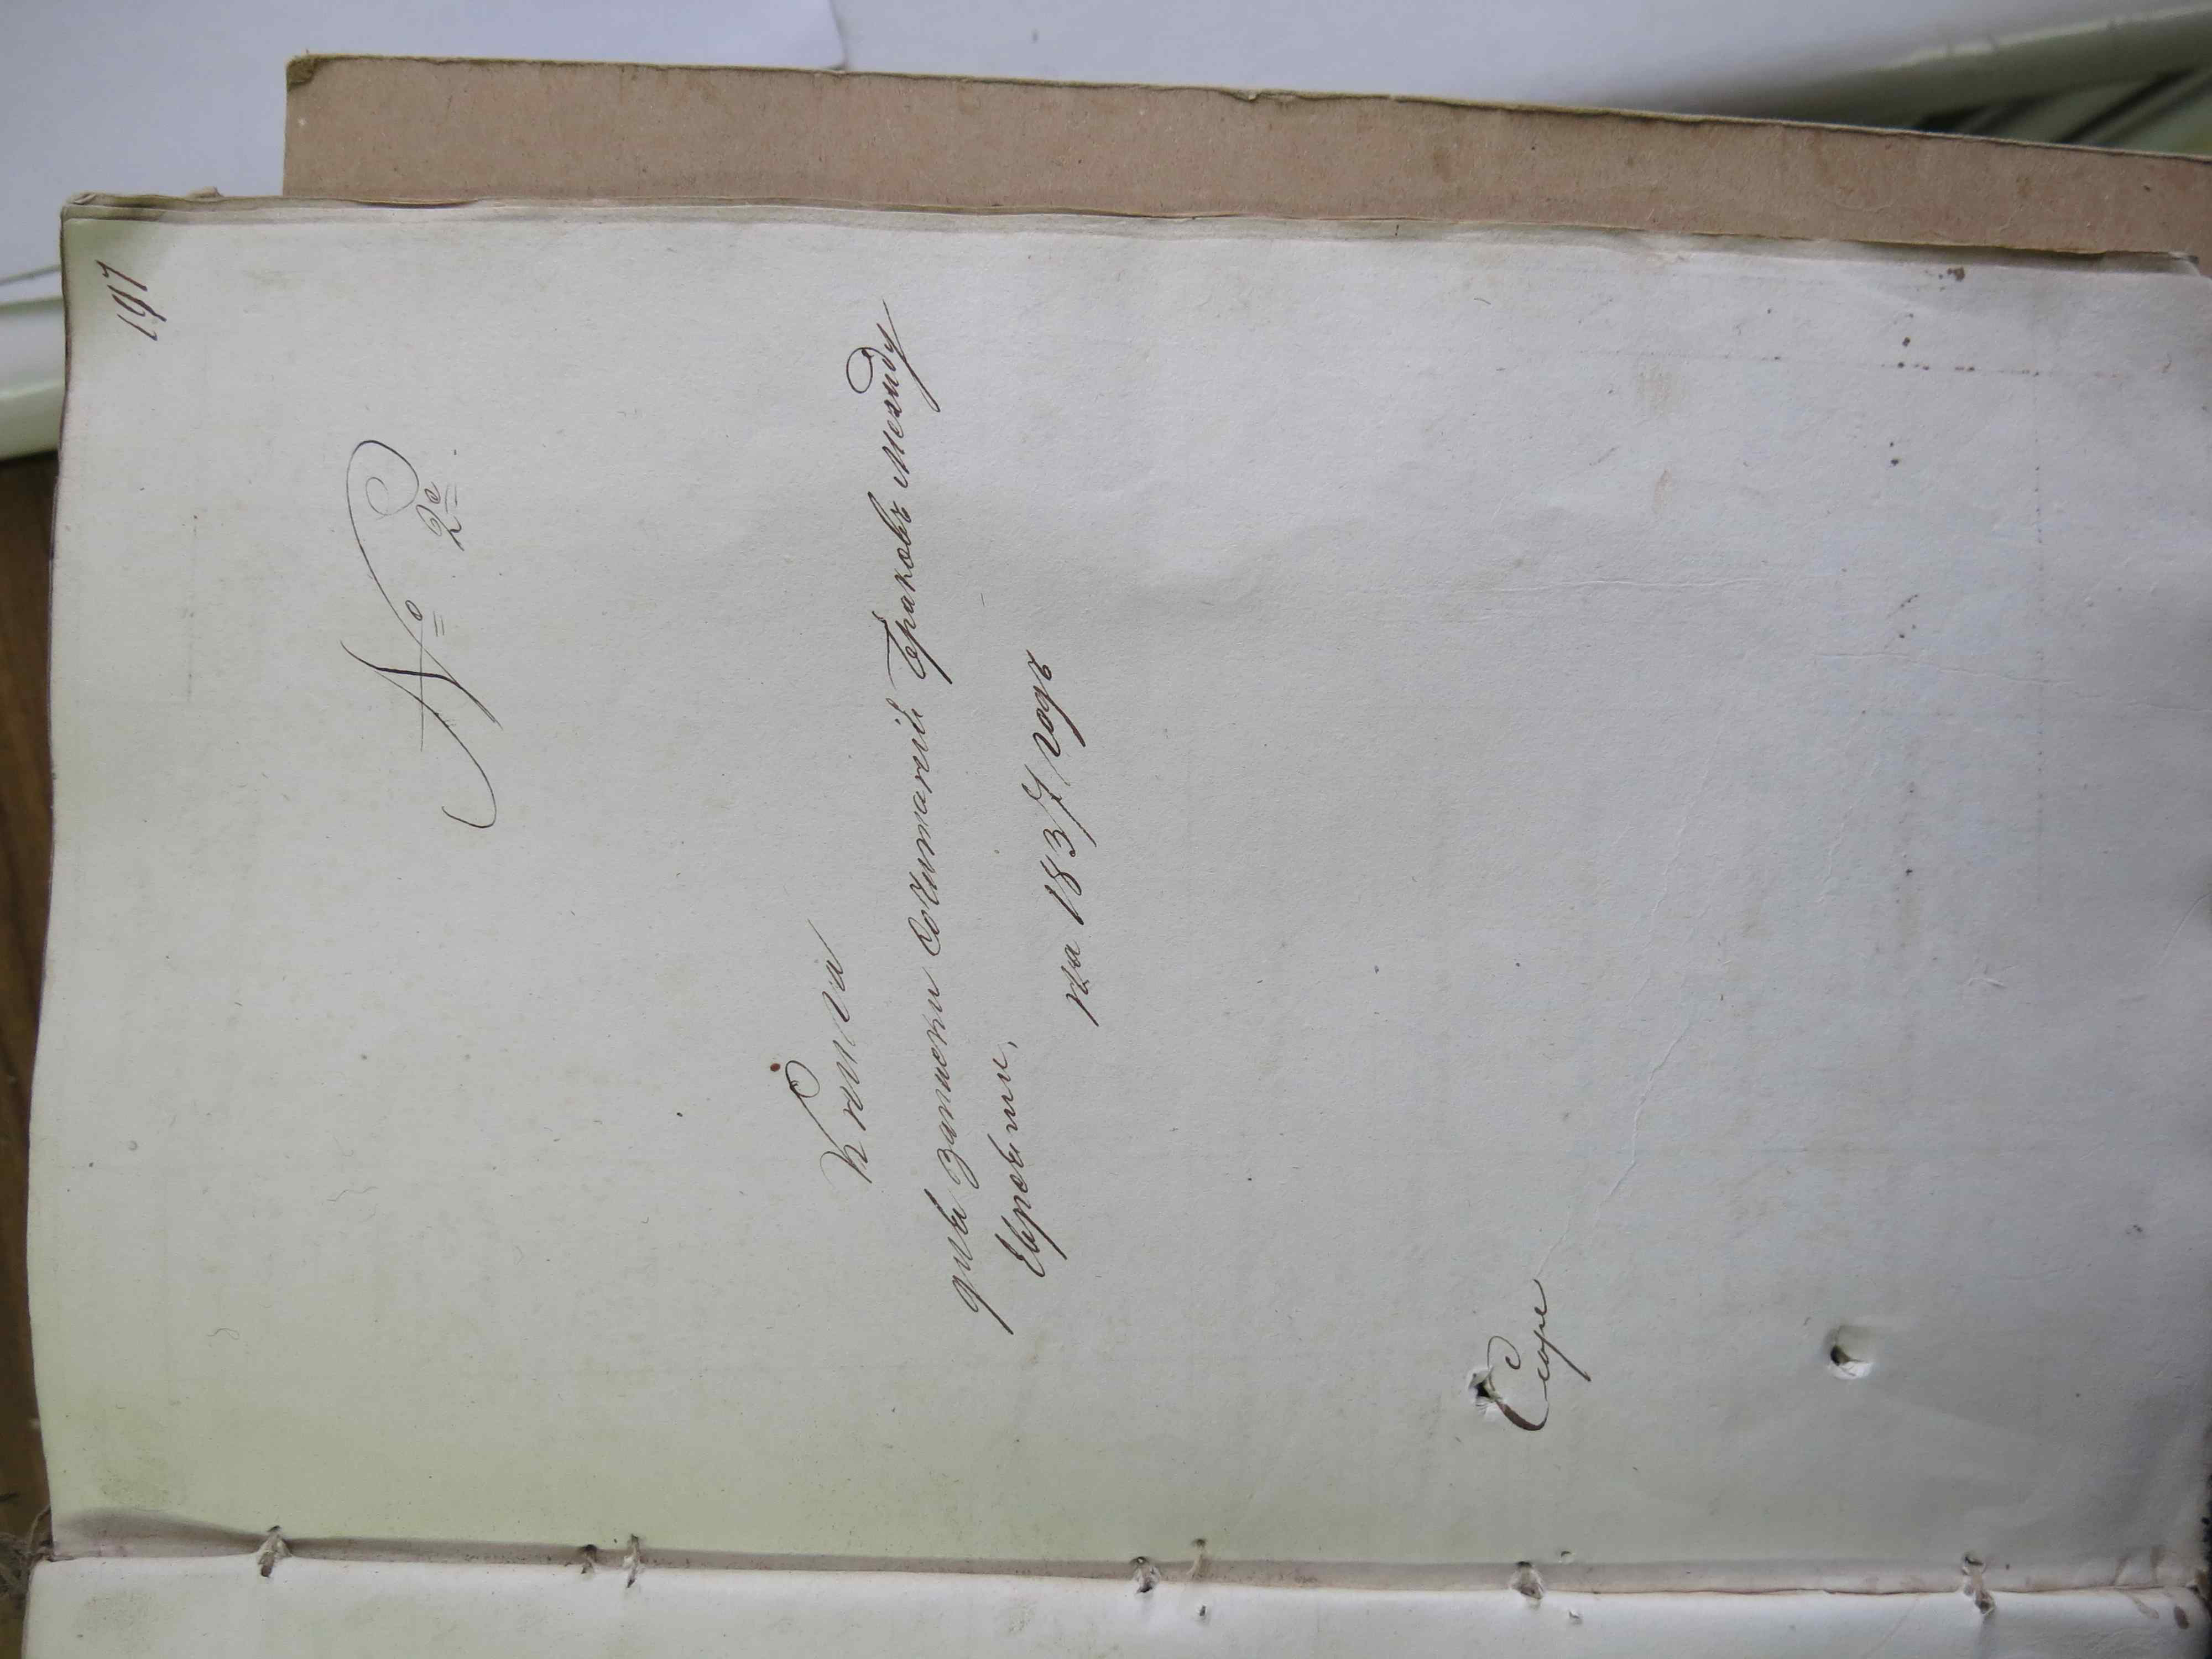 197
№ 2й.
Книга
для записки Сочитаний браковъ между
Евреями,
на 1837 годъ